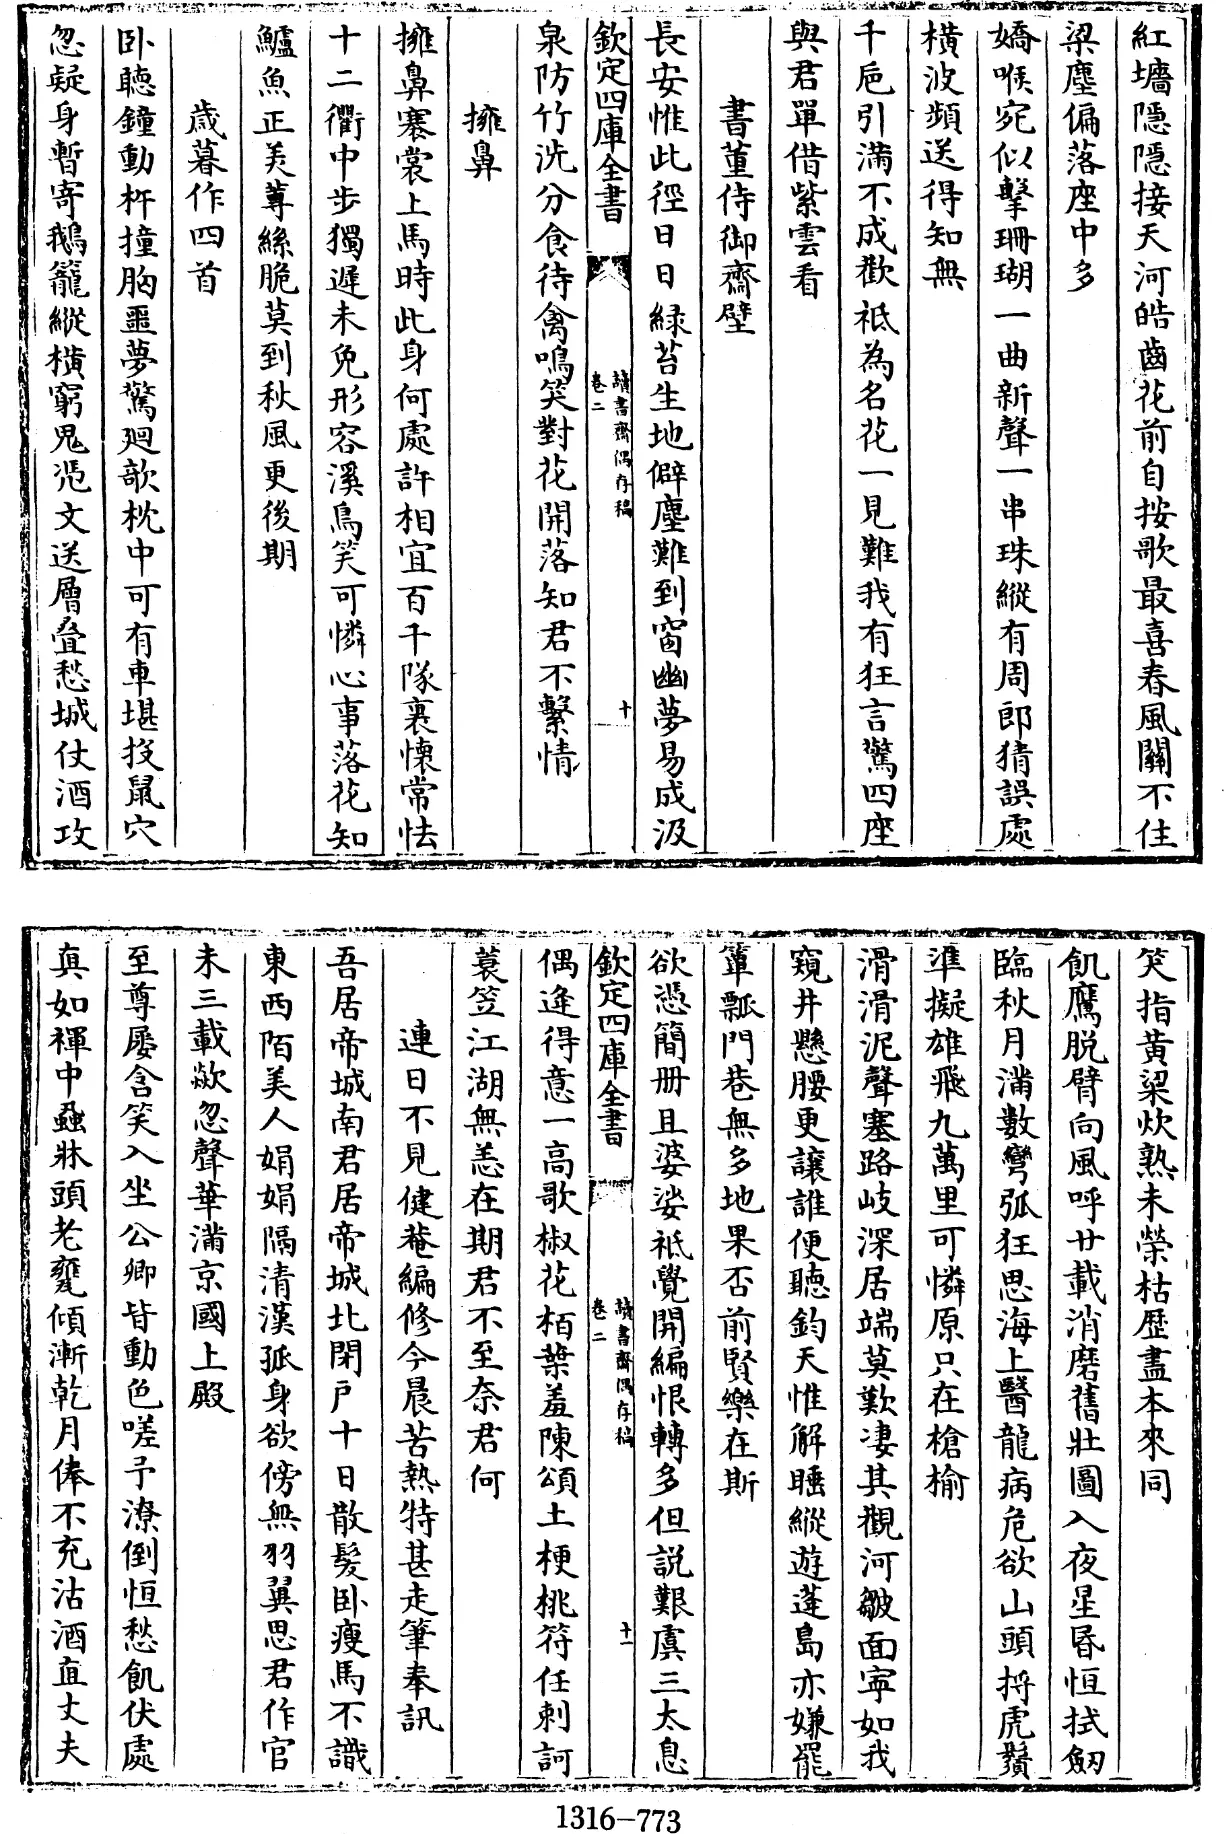 紅墻隱隱接天河皓齒花前自按歌最喜春風關不住
梁塵偏落座中多
嬌喉宛似擊珊瑚一曲新聲一串珠縱有周郎猜誤處
橫波頻送得知無
千巵引滿不成歡祗為名花一見難我有狂言驚四座
與君單借紫雲看
書董侍御齋壁
長安惟此徑日日緑苔生地僻塵難到窗幽夢易成汲
欽定四庫全書
讀書齋偶存稿
卷二
十
泉防竹洗分食待禽鳴笑對花開落知君不繫情
擁鼻
擁鼻褰裳上馬時此身何處許相宜百千隊裏懷常怯
十二衢中步獨遲未免形容溪鳥笑可憐心事落花知
鱸魚正美蓴絲脆莫到秋風更後期
歲暮作四首
卧聽鐘動杵撞胸噩夢驚廻欹枕中可有車堪投鼠穴
忽疑身暫寄鵝籠縱橫窮鬼凴文送層疊愁城仗酒攻
笑指黃粱炊熟未榮枯歴盡本來同
飢鷹脱臂向風呼廿載消磨舊壯圖入夜星昏恒拭劒
臨秋月滿數彎弧狂思海上醫龍病危欲山頭捋虎鬚
準擬雄飛九萬里可憐原只在槍榆
滑滑泥聲塞路岐深居端莫歎凄其觀河皺面寧如我
窺井懸腰更讓誰便聽鈞天惟解睡縱遊蓬島亦嫌罷
簞瓢門巷無多地果否前賢樂在斯
欲憑簡冊且婆娑祇覺開編恨轉多但説艱虞三太息
欽定四庫全書
讀書齋偶存稿
卷二
十一
偶逢得意一高歌椒花栢葉羞陳頌土梗桃符任刺訶
蓑笠江湖無恙在期君不至奈君何
連日不見健菴編修今晨苦熱特甚走筆奉訊
吾居帝城南君居帝城北閉戸十日散髮卧瘦馬不識
東西陌美人娟娟隔清漢孤身欲傍無羽翼思君作官
未三載歘忽聲華滿京國上殿
至尊屢含笑入坐公卿皆動色嗟予潦倒恒愁飢伏處
真如褌中蝨牀頭老甕傾漸乾月俸不充沽酒直丈夫
1316-773